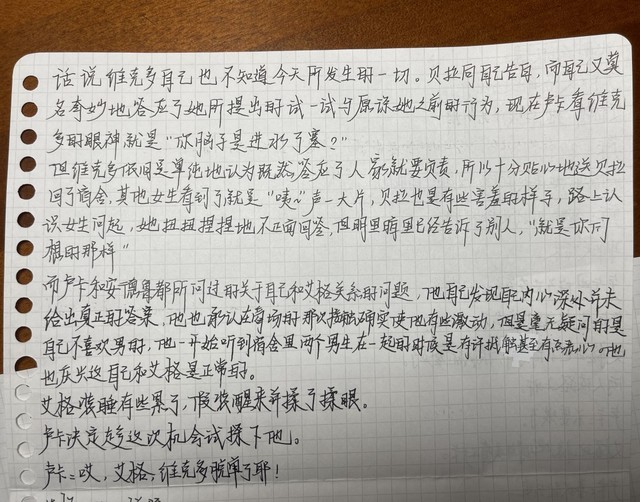 话说维克多自己也不知道今天所发生的一切。贝拉向自己告白,而自己又莫
名奇妙地答应了她所提出的试一试与原谅她之前的行为,现在卢卡看维克
多的眼神就是“你脑子是进水了塞?”
但维克多依旧是单纯地认为既然答应了人家就要负责,所以十分贴心地送贝拉
回了宿舍,其他女生看到了就是“咦~”声一大片,贝拉也是有些害羞的样子,路上认
识女生问起,她扭扭捏捏地不正面回答,但明里暗里已经告诉了别人,“就是你们
想的那样”
而卢卡和安德鲁都所问过的关于自己和艾格关系的问题,他自己发现自己内心深处并未
给出真正的答案,他也承认在商场的那次接触确实使他有些激动,但是毫无疑问的是
自己不喜欢男的,他一开始听到宿舍里两个男生在一起的时候是有许抵触甚至有点恶心,他
也庆兴这自己和艾格是正常的。
艾格装睡有些累了,假装醒来并揉了揉眼。
卢卡决定趁这次机会试探下他。
卢卡:哎,艾格,维克多脱单了耶!